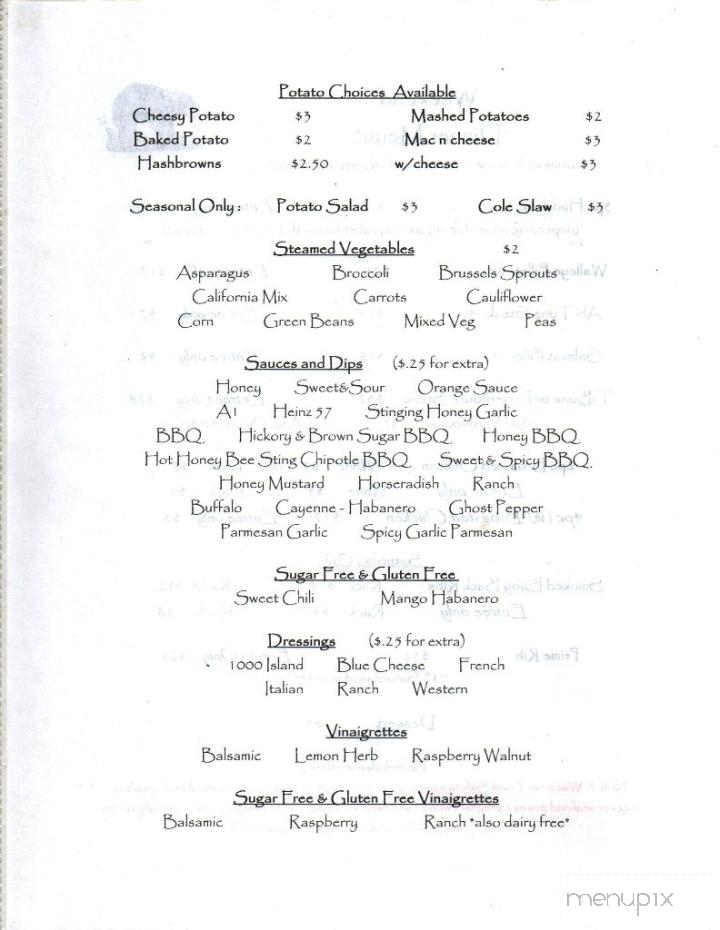 Potato Choices Available
Cheesy Potato $3 Mashed Potatoes $2
Baked Potato $2 Mac n cheese $3
Hashbrowns $2.50 w/cheese $3
Seasonal Only: Potato Salad $3 Cole Slaw $3
Steamed Vegetables $2
Asparagus Broccoli Brussels Sprouts
California Mix Carrots Cauliflower
Corn Green Beans Mixed Veg Peas
Sauces and Dips ($.25 for extra)
Honey Sweet&Sour Orange Sauce
A1 Heinz 57 Stinging Honey Garlic
BBQ Hickory & Brown Sugar BBQ Honey BBQ
Hot Honey Bee Sting Chipotle BBQ Sweet & Spicy BBQ
Honey Mustard Horseradish Ranch
Buffalo Cayenne - Habanero Ghost Pepper
Parmesan Garlic Spicy Garlic Parmesan
Sugar Free & Gluten Free
Sweet Chili Mango Habanero
Dressings ($.25 for extra)
1000 Island Blue Cheese French
Italian Ranch Western
Vinaigrettes
Balsamic Lemon Herb Raspberry Walnut
Sugar Free & Gluten Free Vinaigrettes
Balsamic Raspberry Ranch *also dairy free*
menupix